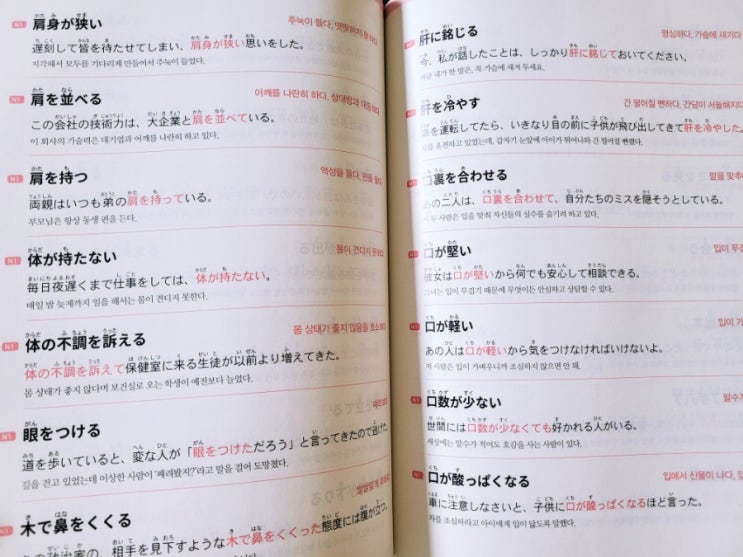 N1 肩身が狭い 주눅이 들다, 떳떳하지 못하다
遅刻して皆を待たせてしまい、肩身が狭い思いをした。
지각해서 모두를 기다리게 만들어서 주눅이 들었다.
N1 肩を並べる 어깨를 나란히 하다, 상대방과 대등하다
この会社の技術力は、大企業と肩を並べている。
이 회사의 기술력은 대기업과 어깨를 나란히 하고 있다.
N1 肩を持つ 역성을 들다, 편을 들다
両親はいつも弟の肩を持っている。
부모님은 항상 동생 편을 든다.
N1 体が持たない 몸이 견디지 못하다
毎日夜遅くまで仕事をしては、体が持たない。
매일 밤 늦게까지 일을 해서는 몸이 견디지 못한다.
N1 体の不調を訴える 몸 상태가 좋지 않음을 호소하다
体の不調を訴えて保健室に来る生徒が以前より増えてきた。
몸 상태가 좋지 않다며 보건실로 오는 학생이 예전보다 늘었다.
N1 眼をつける
道を歩いていると、変な人が「眼をつけただろう」と言ってきたので逃げた。
길을 걷고 있었는데 이상한 사람이 '째려봤지?'라고 말을 걸어 도망쳤다.
N1 木で鼻をくくる
相手を見下すような木で鼻をくくった態度には腹が立つ。
N1 肝に銘じる 명심하다, 가슴에 새기다
今、私が話したことは、しっかり肝に銘じておいてください。
지금 내가 한 말은, 꼭 가슴에 새겨 두세요.
N1 肝を冷やす 간 떨어질 뻔하다, 간담이 서늘해지다
車を運転してたら、いきなり目の前に子供が飛び出してきて肝を冷やした。
차를 운전하고 있었는데, 갑자기 눈앞에 아이가 튀어나와 간 떨어질 뻔했다.
N1 口裏を合わせる 말을 맞추
あの二人は、口裏を合わせて、自分たちのミスを隠そうとしている。
저 두 사람은 입을 맞춰 자신들의 실수를 숨기려 하고 있다.
N1 口が堅い 입이 무겁
彼女は口が堅いから何でも安心して相談できる。
그녀는 입이 무겁기 때문에 무엇이든 안심하고 상담할 수 있다.
N1 口が軽い 입이 가
あの人は口が軽いから気をつけなければいけないよ。
저 사람은 입이 가벼우니까 조심하지 않으면 안 돼.
N1 口数が少ない 말수가
世間には口数が少なくても好かれる人がいる。
세상에는 말수가 적어도 호감을 사는 사람이 있다.
N1 口が酸っぱくなる 입에서 신물이 나다, 입
車に注意しなさいと、子供に口が酸っぱくなるほど言った。
차를 조심하라고 아이에게 입이 닳도록 말했다.